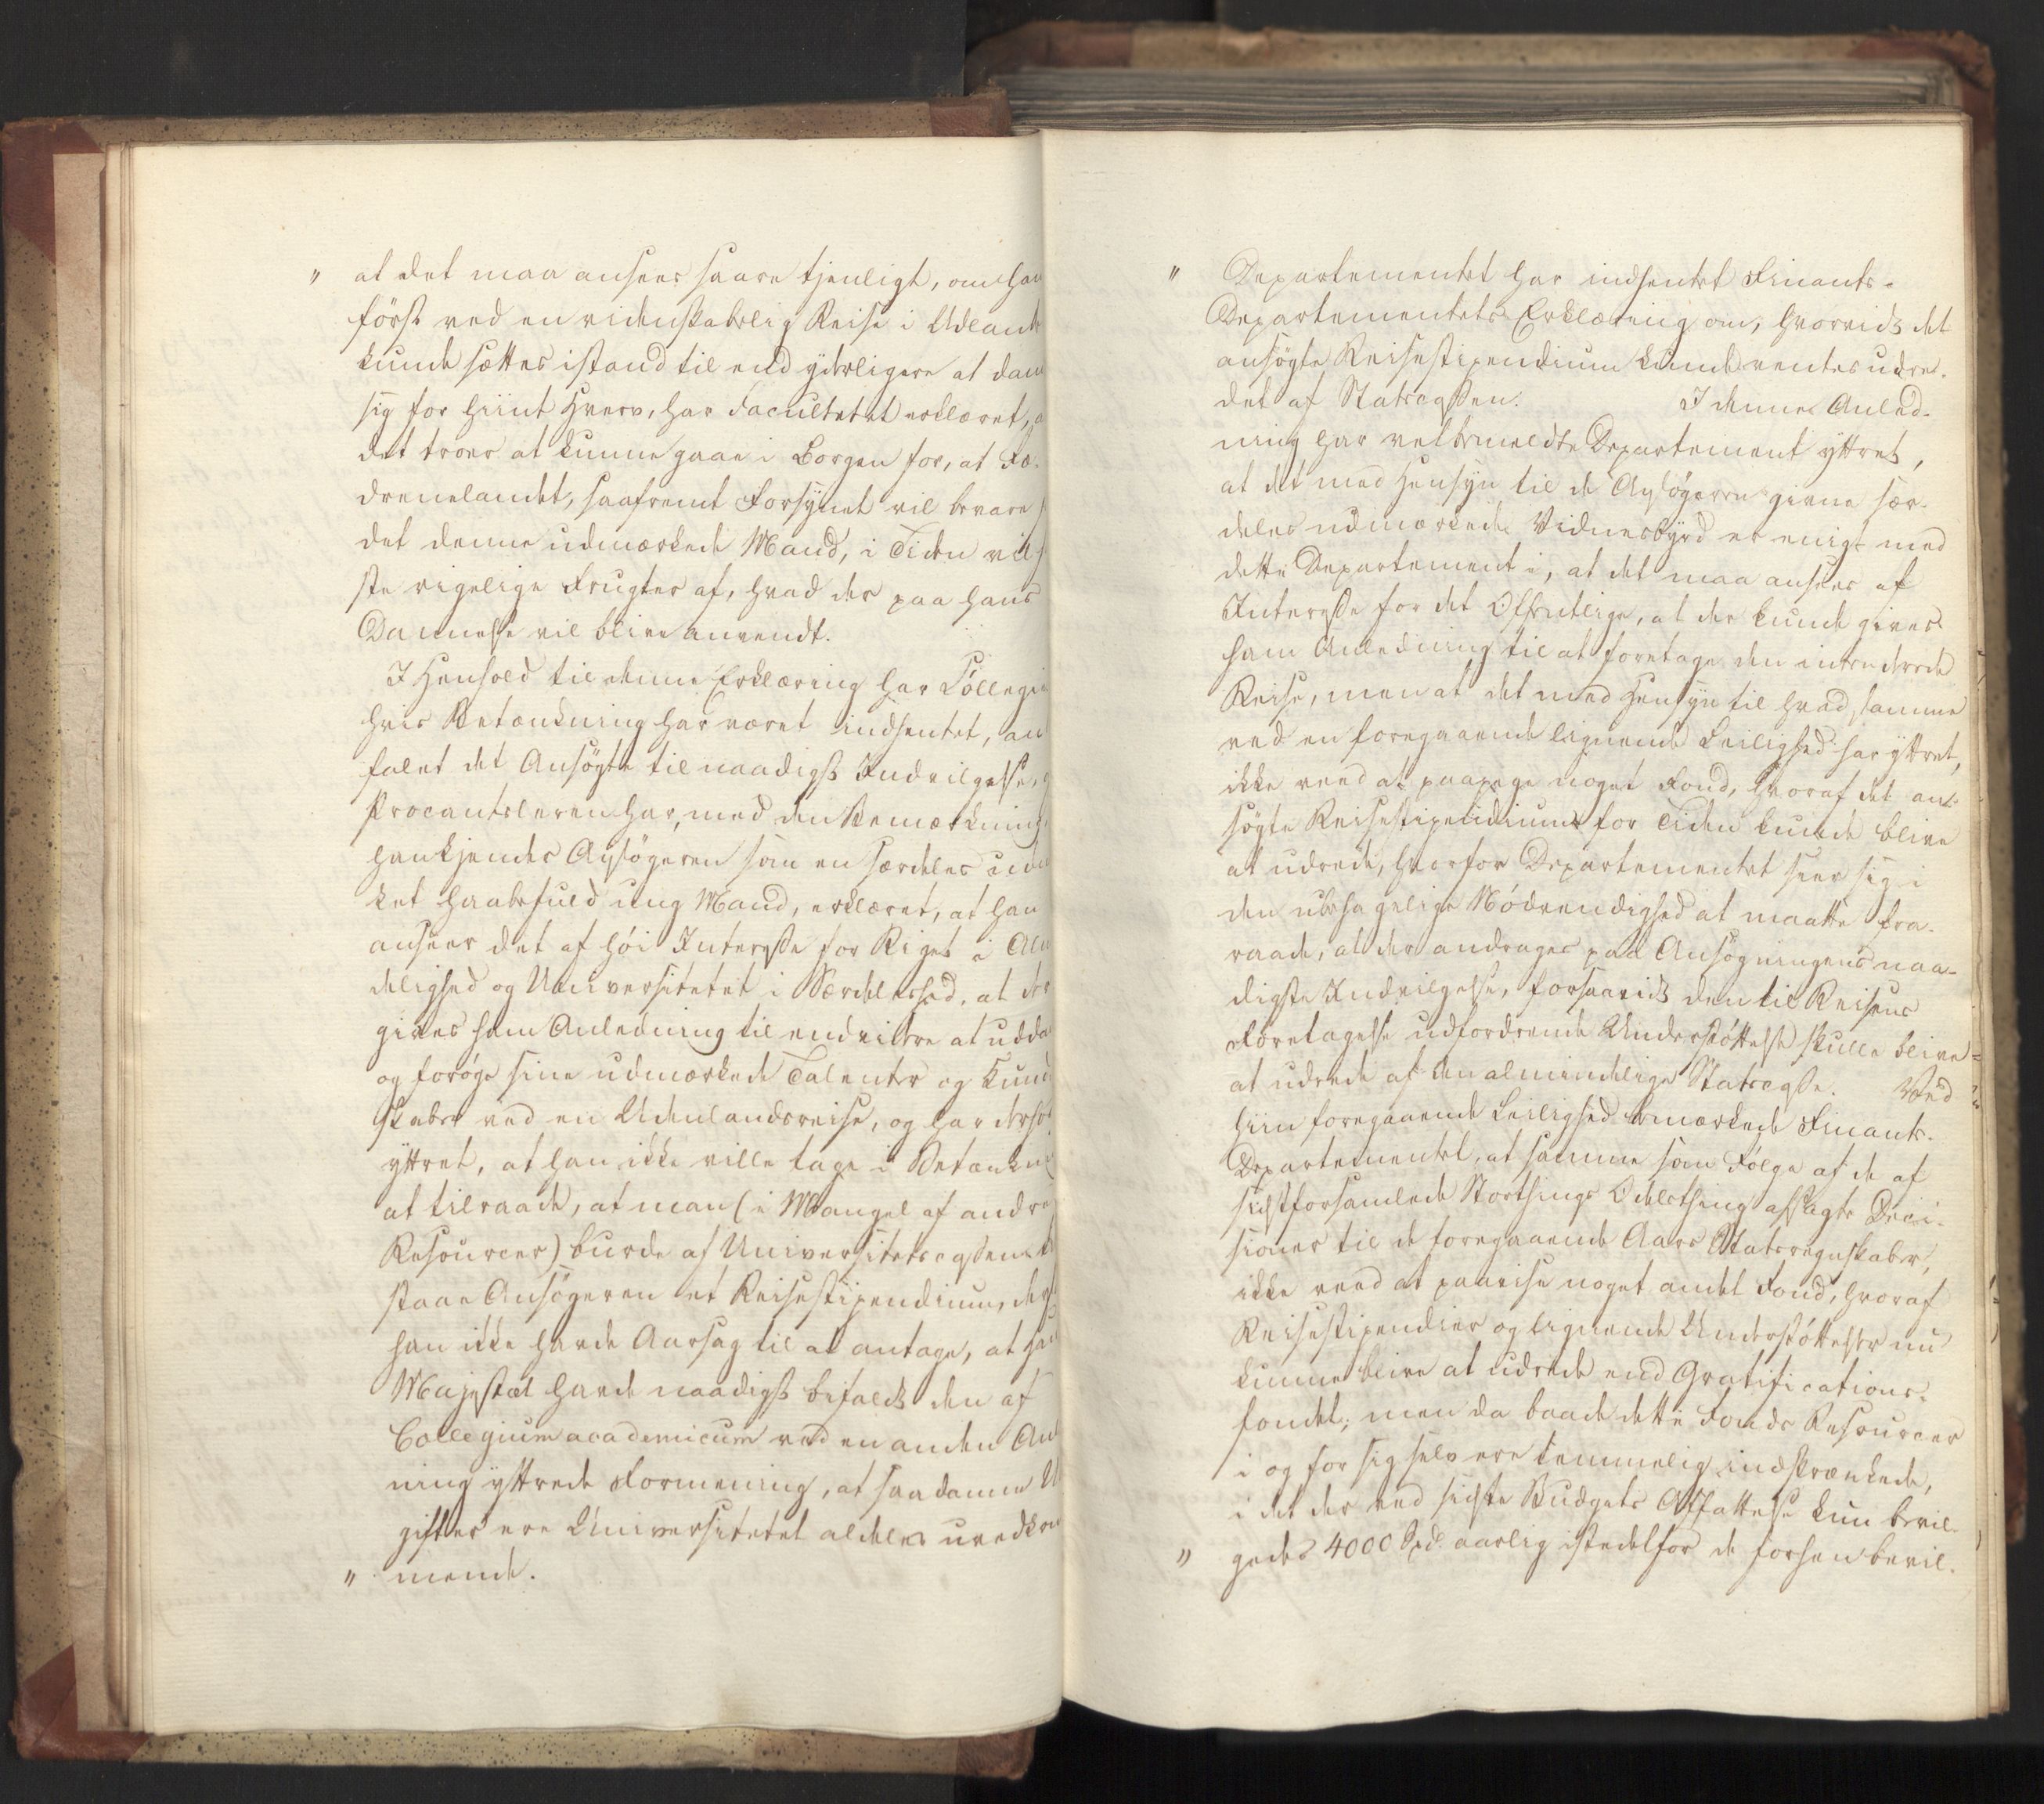 " at det maa ansees saare tjenligt, om han
först ved en videnskabelig Reise i Udlandet
kunde sættes istand til end yderligere at danne
sig for hiint Hverv, har Facultetet erklæret, a
det troer at kunne gaae i Borgen for, at Fæ-
drenelandet, saafremt Forsynet vil bevare
det denne udmærkede Mand, i Tiden vil
ste rigelige Frugter af, hvad der paa hans
Dannelse vil blive anvendt.
I Henhold til denne Erklæring har Collegiet
hvis Betænkning har været indhentet, an
falet det Ansögte til naadigst Indvilgelse,
Procantsleren har, med den Bemærkning
han kjender Ansögeren som en særdeles udm
ket haabefuld ung Mand, erklæret, at han
ansees det af höi Interesse for Riget i Alm
delighed og Universitetet i Særdeleshed, at der
gives ham Anledning til end videre at udda
og foröge sine udmærkede Talenter og Kund
skaber ved en Udenlandsreise, og har derho
yttret, at han ikke ville tage i Betænkn
at tilraade, at man (i Mangel af andre
Resourcer) burde af Universitetscassen til
staae Ansögeren et Reisestipendium, ders
han ikke havde Aarsag til at antage, at Han
Majestæt havde naadigst bifaldt den af
Collegium academicum ved en anden Anl
ning yttrede Formening, at saadanne U
gifter ere Universitetet aldeles uvedkom
" mende.
" Departementet har indhentet Finants-
Departementets Erklæring om, hvorvidt det
ansögte Reisestipendium kunde ventes udre-
det af Statscassen. I denne Anled-
ning har velbemeldte Departement yttret,
at det med Hensyn til de Ansögeren givne sær-
deles udmærkede Vidnesbyrd er enigt med
dette Departement i, at det maa ansees af
Interesse for det Offentlige, at der kunde gives
ham Anledning til at foretage den intenderede
Reise, men at det med Hensyn til hvad samme
ved en foregaaende lignende Leilighed har yttret,
ikke veed at paapege noget Fond, hvoraf det an-
sögte Reisestipendium for Tiden kunde blive
at udrede, hvorfor Departementet seer sig i
den ubehagelige Nödvendighed at maatte fra-
raade, at der andrages paa Ansögningens naa-
digste Indvilgelse, forsaavidt den til Reisens
Foretagelse udfordrende Understöttelse skulle blive
at udrede af den almindelige Statscasse. Ved
hiin foregaaende Leilighed bemærkede Finants-
Departementet, at samme som Fölge af de af
sidstforsamlede Storthings Odelsthing afsagte Deci-
sioner til de foregaaende Aars Statsregnskaber,
ikke veed at paavise noget andet Fond, hvoraf
Reisestipendier og lignende Understöttelser nu
kunne blive at udrede end Gratifications-
fondet; men da baade dette Fonds Resourcer
i og for sig selv ere temmelig indskrænkede,
i det der ved sidste Budgets Affattelse kun bevil-
" gedes 4000 Spd. aarlig istedetfor de forhen bevil-